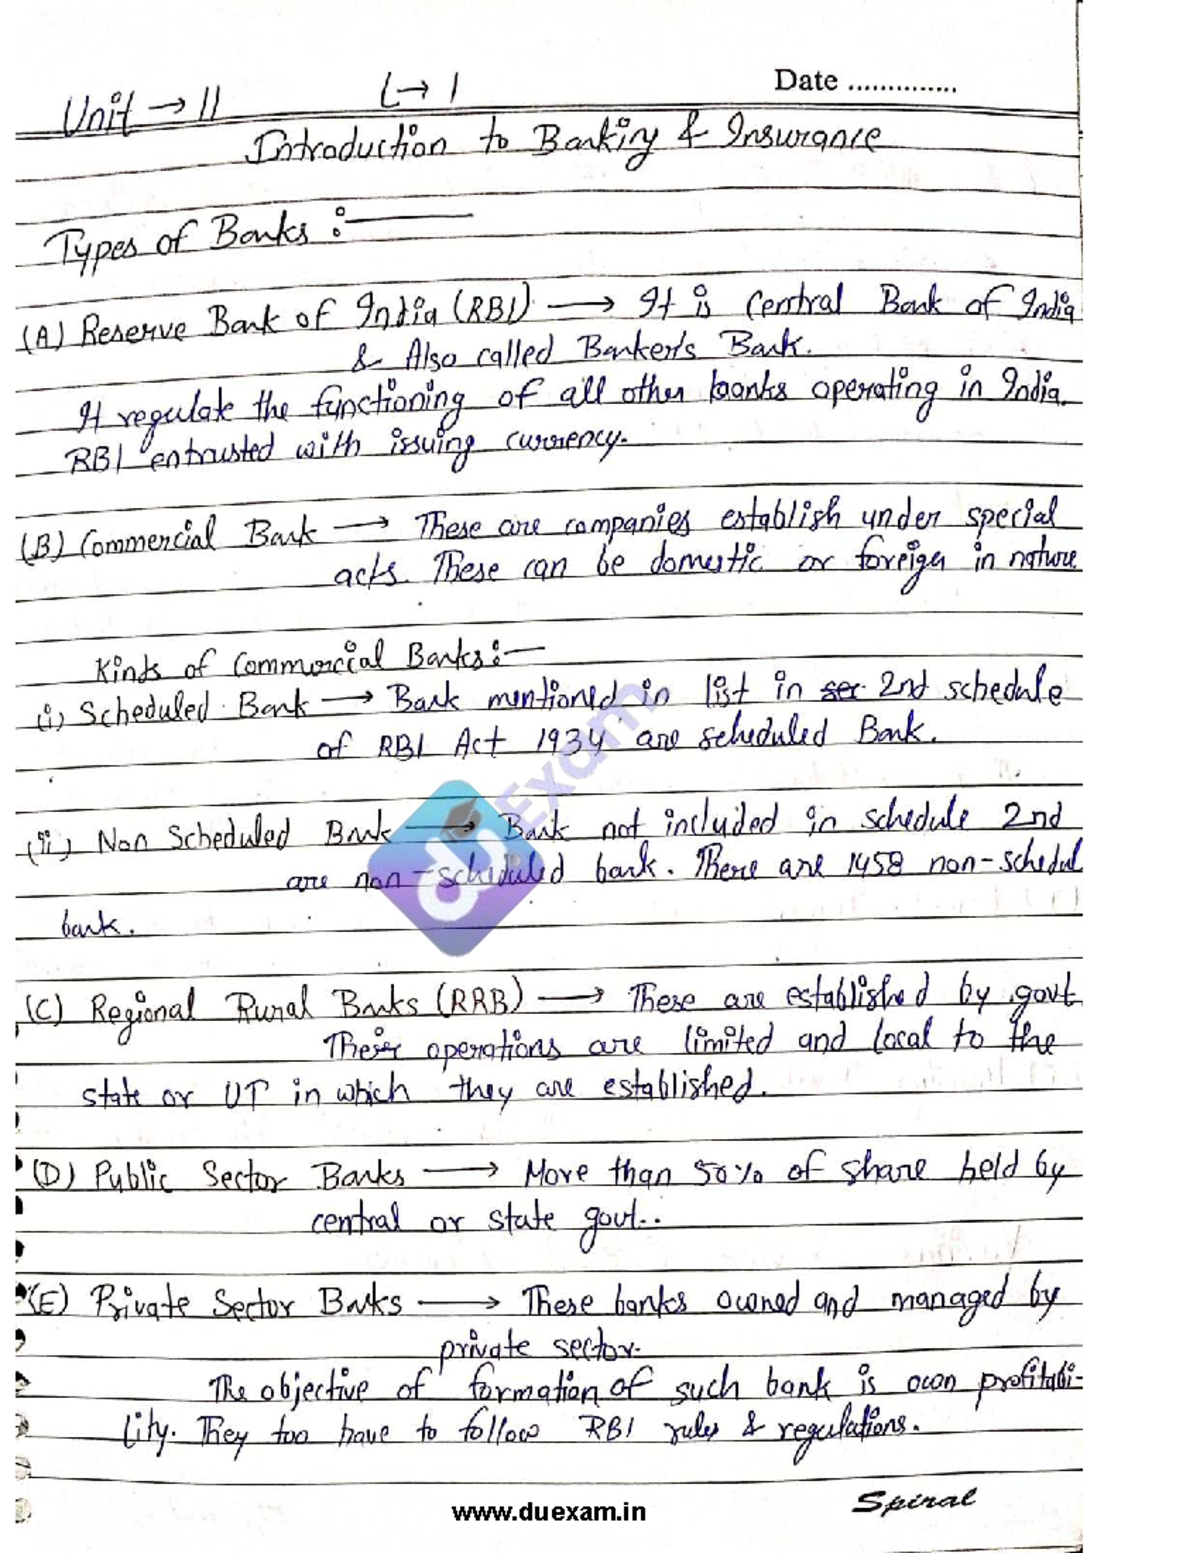 Unit → II L → 1 Date ..............
Introduction to Banking & Insurance
Types of Banks :—
(A) Reserve Bank of India (RBI) → It is Central Bank of India
& Also called Banker's Bank.
It regulate the functioning of all other banks operating in India.
RBI entrusted with issuing currency.
(B) Commercial Bank → These are companies establish under special
acts. These can be domestic or foreign in nature
Kinds of Commercial Banks:—
(i) Scheduled Bank → Bank mentioned in list in sec 2nd schedule
of RBI Act 1934 are scheduled Bank.
(ii) Non Scheduled Bank → Bank not included in schedule 2nd
are non-scheduled bank. There are 1458 non-schedul
bank.
(C) Regional Rural Banks (RRB) → These are established by govt
Their operations are limited and local to the
state or UT in which they are established.
(D) Public Sector Banks → More than 50% of share held by
central or state govt..
(E) Private Sector Banks → These banks owned and managed by
private sector.
The objective of formation of such bank is own profitabi-
lity. They too have to follow RBI rules & regulations.
du Exam
www.duexam.in Spiral